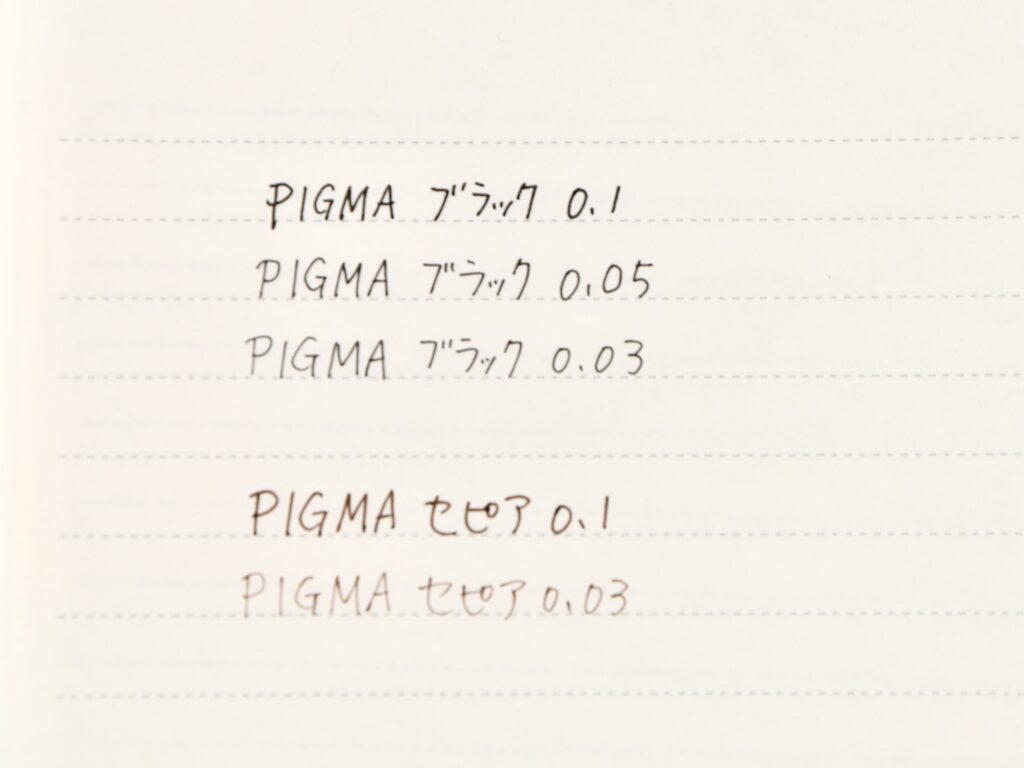 PIGMA ブラック 0.1
PIGMA ブラック 0.05
PIGMA ブラック 0.03
PIGMA セピア 0.1
PIGMA セピア 0.03